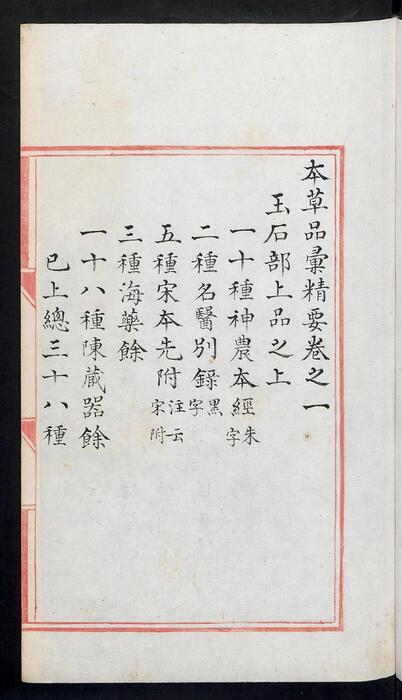 本草品彙精要卷之一
玉石部上品之上
一十種神農本經朱字
二種名醫別錄黑字
五種宋本先附注云宋附
三種海藥餘
一十八種陳藏器餘
已上總三十八種